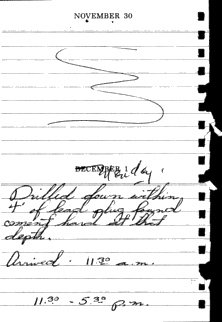 NOVEMBER 30
DECEMBER 1
Drilled down within
4' of lead plug found
cement hard at that
depth.
Arrived. 11:30 a.m.
11:30 - 5:30 p.m.